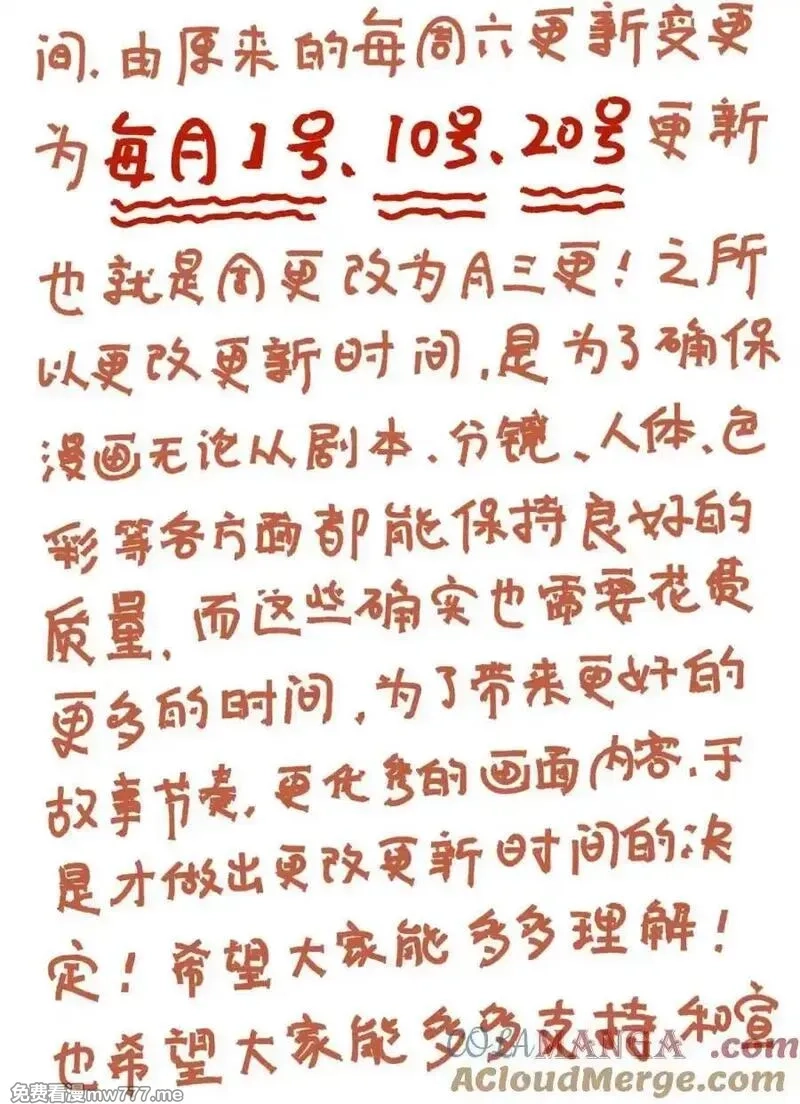 间,由原来的每周六更新变更
为每月1号、10号、20号更新
也就是周更改为月三更!之所
以更改更新时间,是为了确保
漫画无论从剧本、分镜、人体、色
彩等各方面都能保持良好的
质量,而这些确实也需要花费
更多的时间,为了带来更好的
故事节奏,更优秀的画面内容,于
是才做出更改更新时间的决
定!希望大家能多多理解!
也希望大家能多多支持和宣
COLAMANGA.com
AcloudMerge.com
免费看漫mw777.me